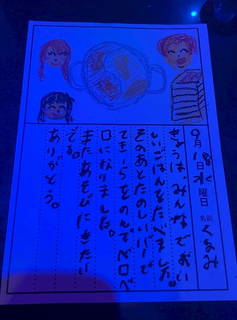 9月18日水曜日 名前 くるみ
きょうは、みんなでおい
しいごはんをたべました。
そのあとたのしいバーで
てきーらをのんでベロベ
ロになりました。
またあそびにきたい
です。
ありがとう。